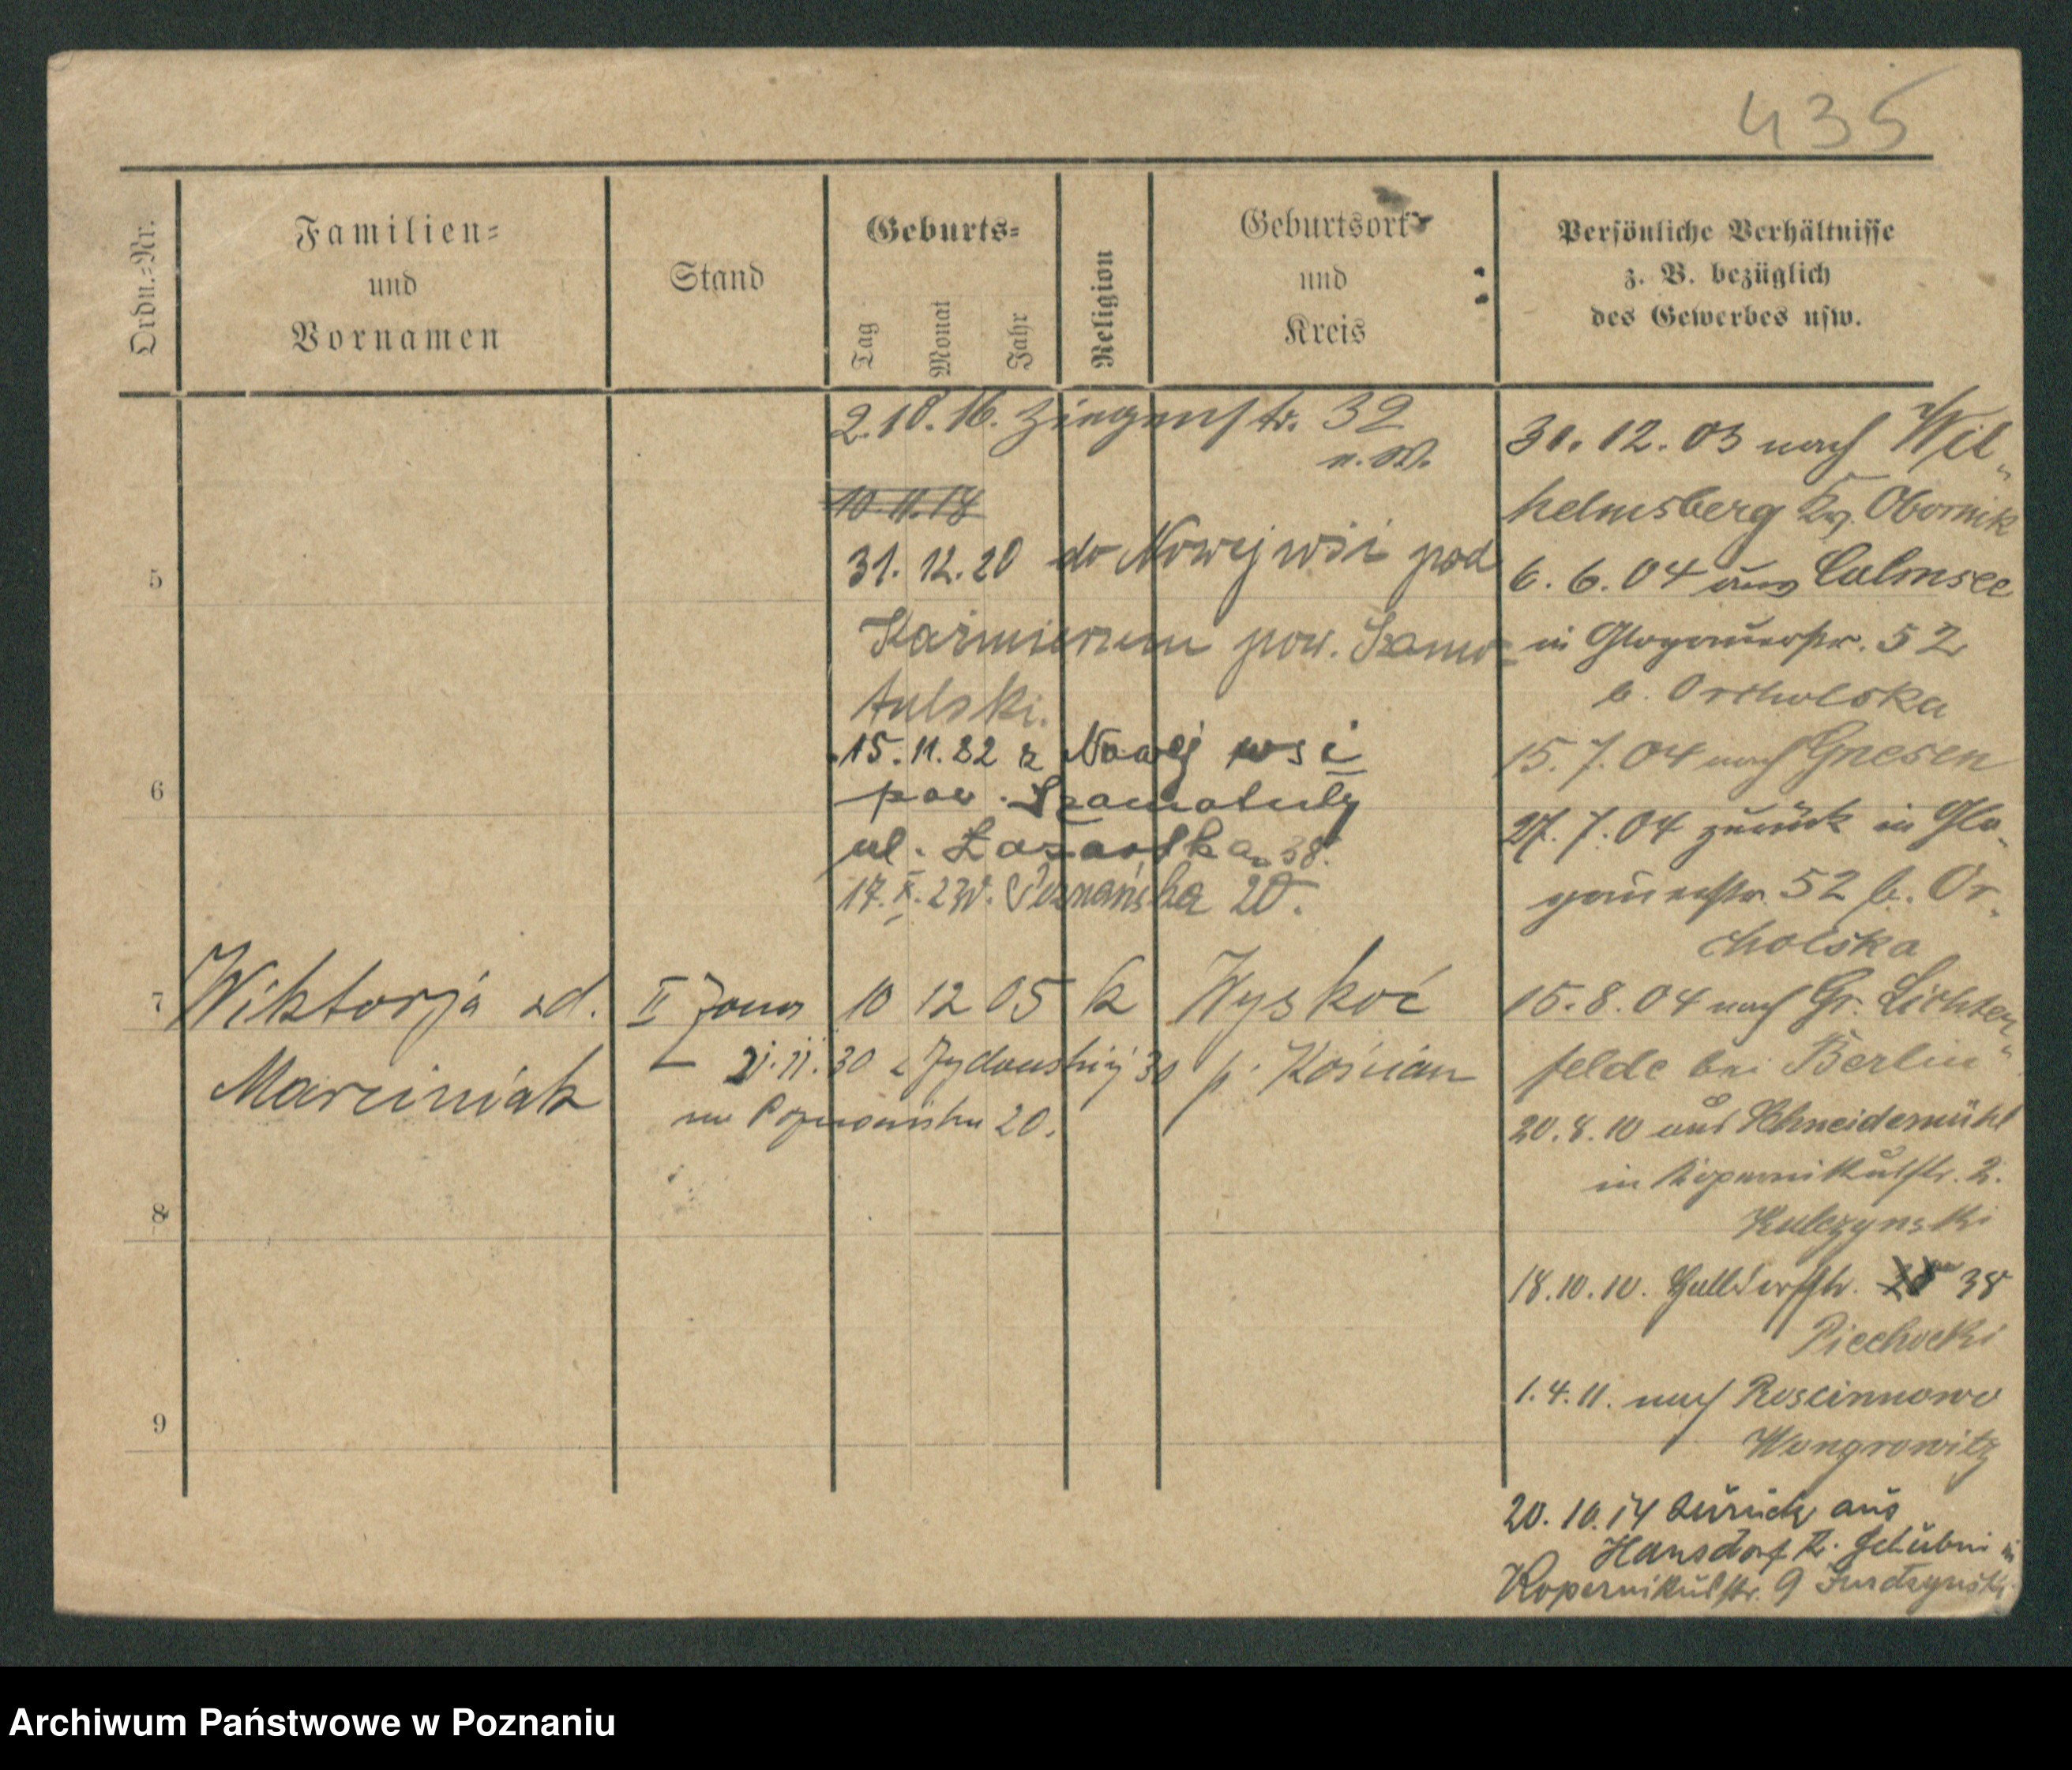 435
Ordn.-Nr.
Familien-
und
Vornamen
Stand
Geburts-
Tag
Monat
Jahr
Religion
Geburtsort
und
Kreis
Persönliche Verhältnisse
z. B. bezüglich
des Gewerbes usw.
2.10.16. Ziegenstr. 32
n. W.
10.11.18
31. 12. 20 do Nowej wsi pod
Kaźmierzem pow. Szamo-
tulski.
15. 11. 22 z Nowej wsi
pow. Szamotuły
ul. Łazarska 38.
17. X. 23 W. Poznańska 20.
5
6
7 Wiktorja zd. II żona 10 12 05 k Wyskoć
Marciniak p. Kościan
21.11.30 z Żydowskiej 30
na Poznańska 20.
8
9
31. 12. 03 nach Wil-
helmsberg Kr. Obornik
6. 6. 04 aus Culmsee
in Glogauerstr. 52
b. Orcholska
15. 7. 04 nach Gnesen
27. 7. 04 zurück in Glo-
gauerstr. 52 b. Or-
cholska
15. 8. 04 nach Gr. Lichter-
felde bei Berlin
20. 8. 10 aus Schneidemühl
in Kopernikusstr. 2.
Kulczynski
18. 10. 10. 38
Piechocki
1. 4. 11. nach Roscinnowo
Wongrowitz
20. 10. 14 zurück aus
Hansdorf Kr. Schubin in
Kopernikusstr. 9
Archiwum Państwowe w Poznaniu